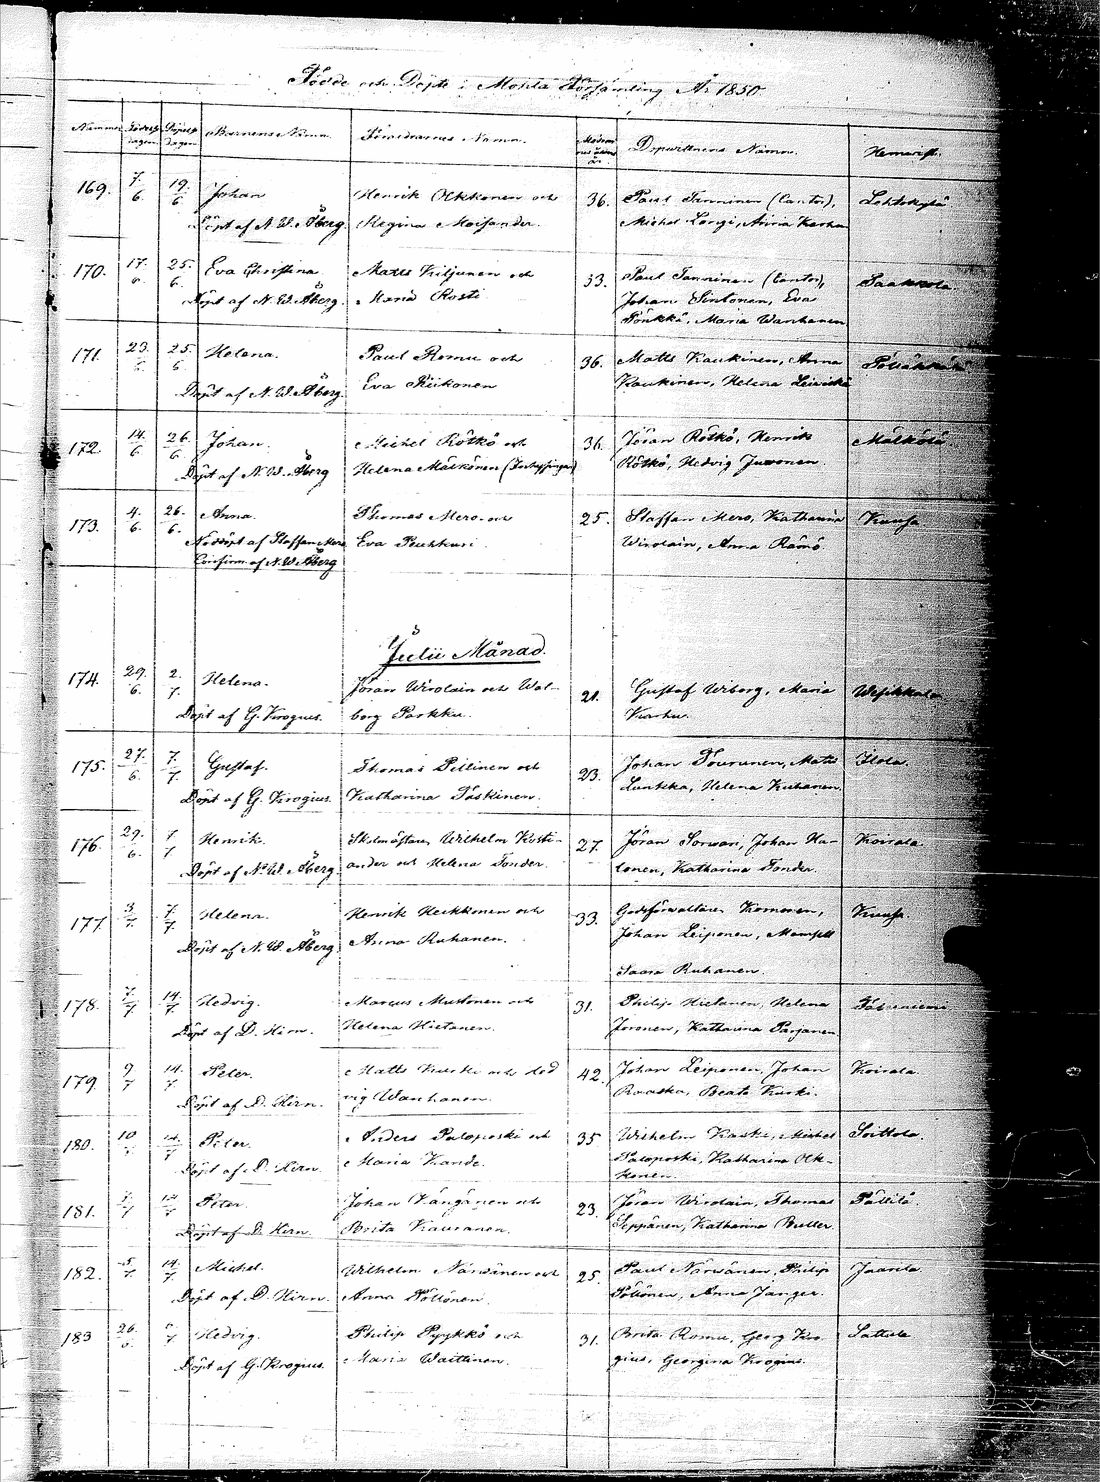 Födde och Döpte i Mohla Församling År 1850
Nummer Födelse dagen Döpelse dagen Barnens Namn Föräldrarnes Namn Modrens ålder år Dopvittnens Namn Hemvist
169. 7/6 19/6 Johan Henrik Olkkonen och 36. Paul Tanninen (Cantor), Lehtokylä
Döpt af N. W. Åberg. Regina Moisander. Michel Longi, Anna Karhu
170. 17/6 25/6 Eva Christina Matts Kiljunen och 33. Paul Tanninen (Cantor), Saakkola.
Döpt af N. W. Åberg. Maria Rosti Johan Sintonen, Eva
Pönkkä, Maria Wanhanen
171. 23/6 25/6 Helena. Paul Romu och 36. Matts Kaukinen, Anna
Döpt af N. W. Åberg. Eva Kiikonen Kaukinen, Helena
172. 14/6 26/6 Johan. Michel Rötkö och 36. Jöran Rötkö, Henrik Mälkölä
Döpt af N. W. Åberg Helena Mälkönen Rötkö, Hedvig Juvonen
173. 4/6 26/6 Anna. Thomas Mero och 25. Staffan Mero, Katharina Kuusa
Nöddöpt af Staffan Mero Eva Puhkuri. Wirolain, Anna Rämö.
Confirm. af N. W. Åberg
Julii Månad.
174. 29/6 2/7 Helena. Jöran Wirolain och Wal- 21. Gustaf Wiborg, Maria Wesikkala
Döpt af G. Krogius. borg Parkku. Karhu.
175. 27/6 7/7 Gustaf. Thomas Pillinen och 23. Johan Tourunen, Matts Ilola.
Döpt af G. Krogius. Katharina Paskinen. Luukka, Helena Kuhanen.
176. 29/6 7/7 Henrik. Skolmästaren Wilhelm Kosti- 27. Jöran Sorvari, Johan Ha- Koirala.
Döpt af N. W. Åberg. ander och Helena Tonder. lonen, Katharina Tonder.
177. 3/7 7/7 Helena. Henrik Heikkonen och 33. Godsförvaltaren Komonen, Kuusa.
Döpt af N. W. Åberg. Anna Ruhanen. Johan Leiponen, Mamsell
Saara Ruhanen.
178. 7/7 14/7 Hedvig. Marcus Mustonen och 31. Philip Hietanen, Helena
Döpt af D. Hirn. Helena Hietanen. Joronen, Katharina Parjanen
179. 9/7 14/7 Peter. Matts Kurki och Hed 42. Johan Leiponen, Johan Koirala
Döpt af D. Hirn. vig Wanhanen. Raaska, Beata Kurki.
180. 10 14/7 Peter. Anders Paloposki och 35 Wilhelm Kaski, Michel Soittola.
Döpt af D. Hirn. Maria Kande. Paloposki, Katharina Olk-
konen.
181. 7/7 14/7 Peter. Johan Kängänen och 23. Jöran Wirolain, Thomas Pällilä
Döpt af D. Hirn. Brita Kauranen. Seppänen, Katharina Butter
182. 5/7 14/7 Michel. Wilhelm Närvänen och 25. Paul Närvänen, Philip Jaarila
Döpt af D. Hirn. Anna Pöllönen. Pöllönen, Anna Janger.
183 26/6 Hedvig. Philip Pyykkö och 31. Brita Romu, Georg Kro
Döpt af G. Krogius. Maria Waittinen. gius, Georgina Krogius.